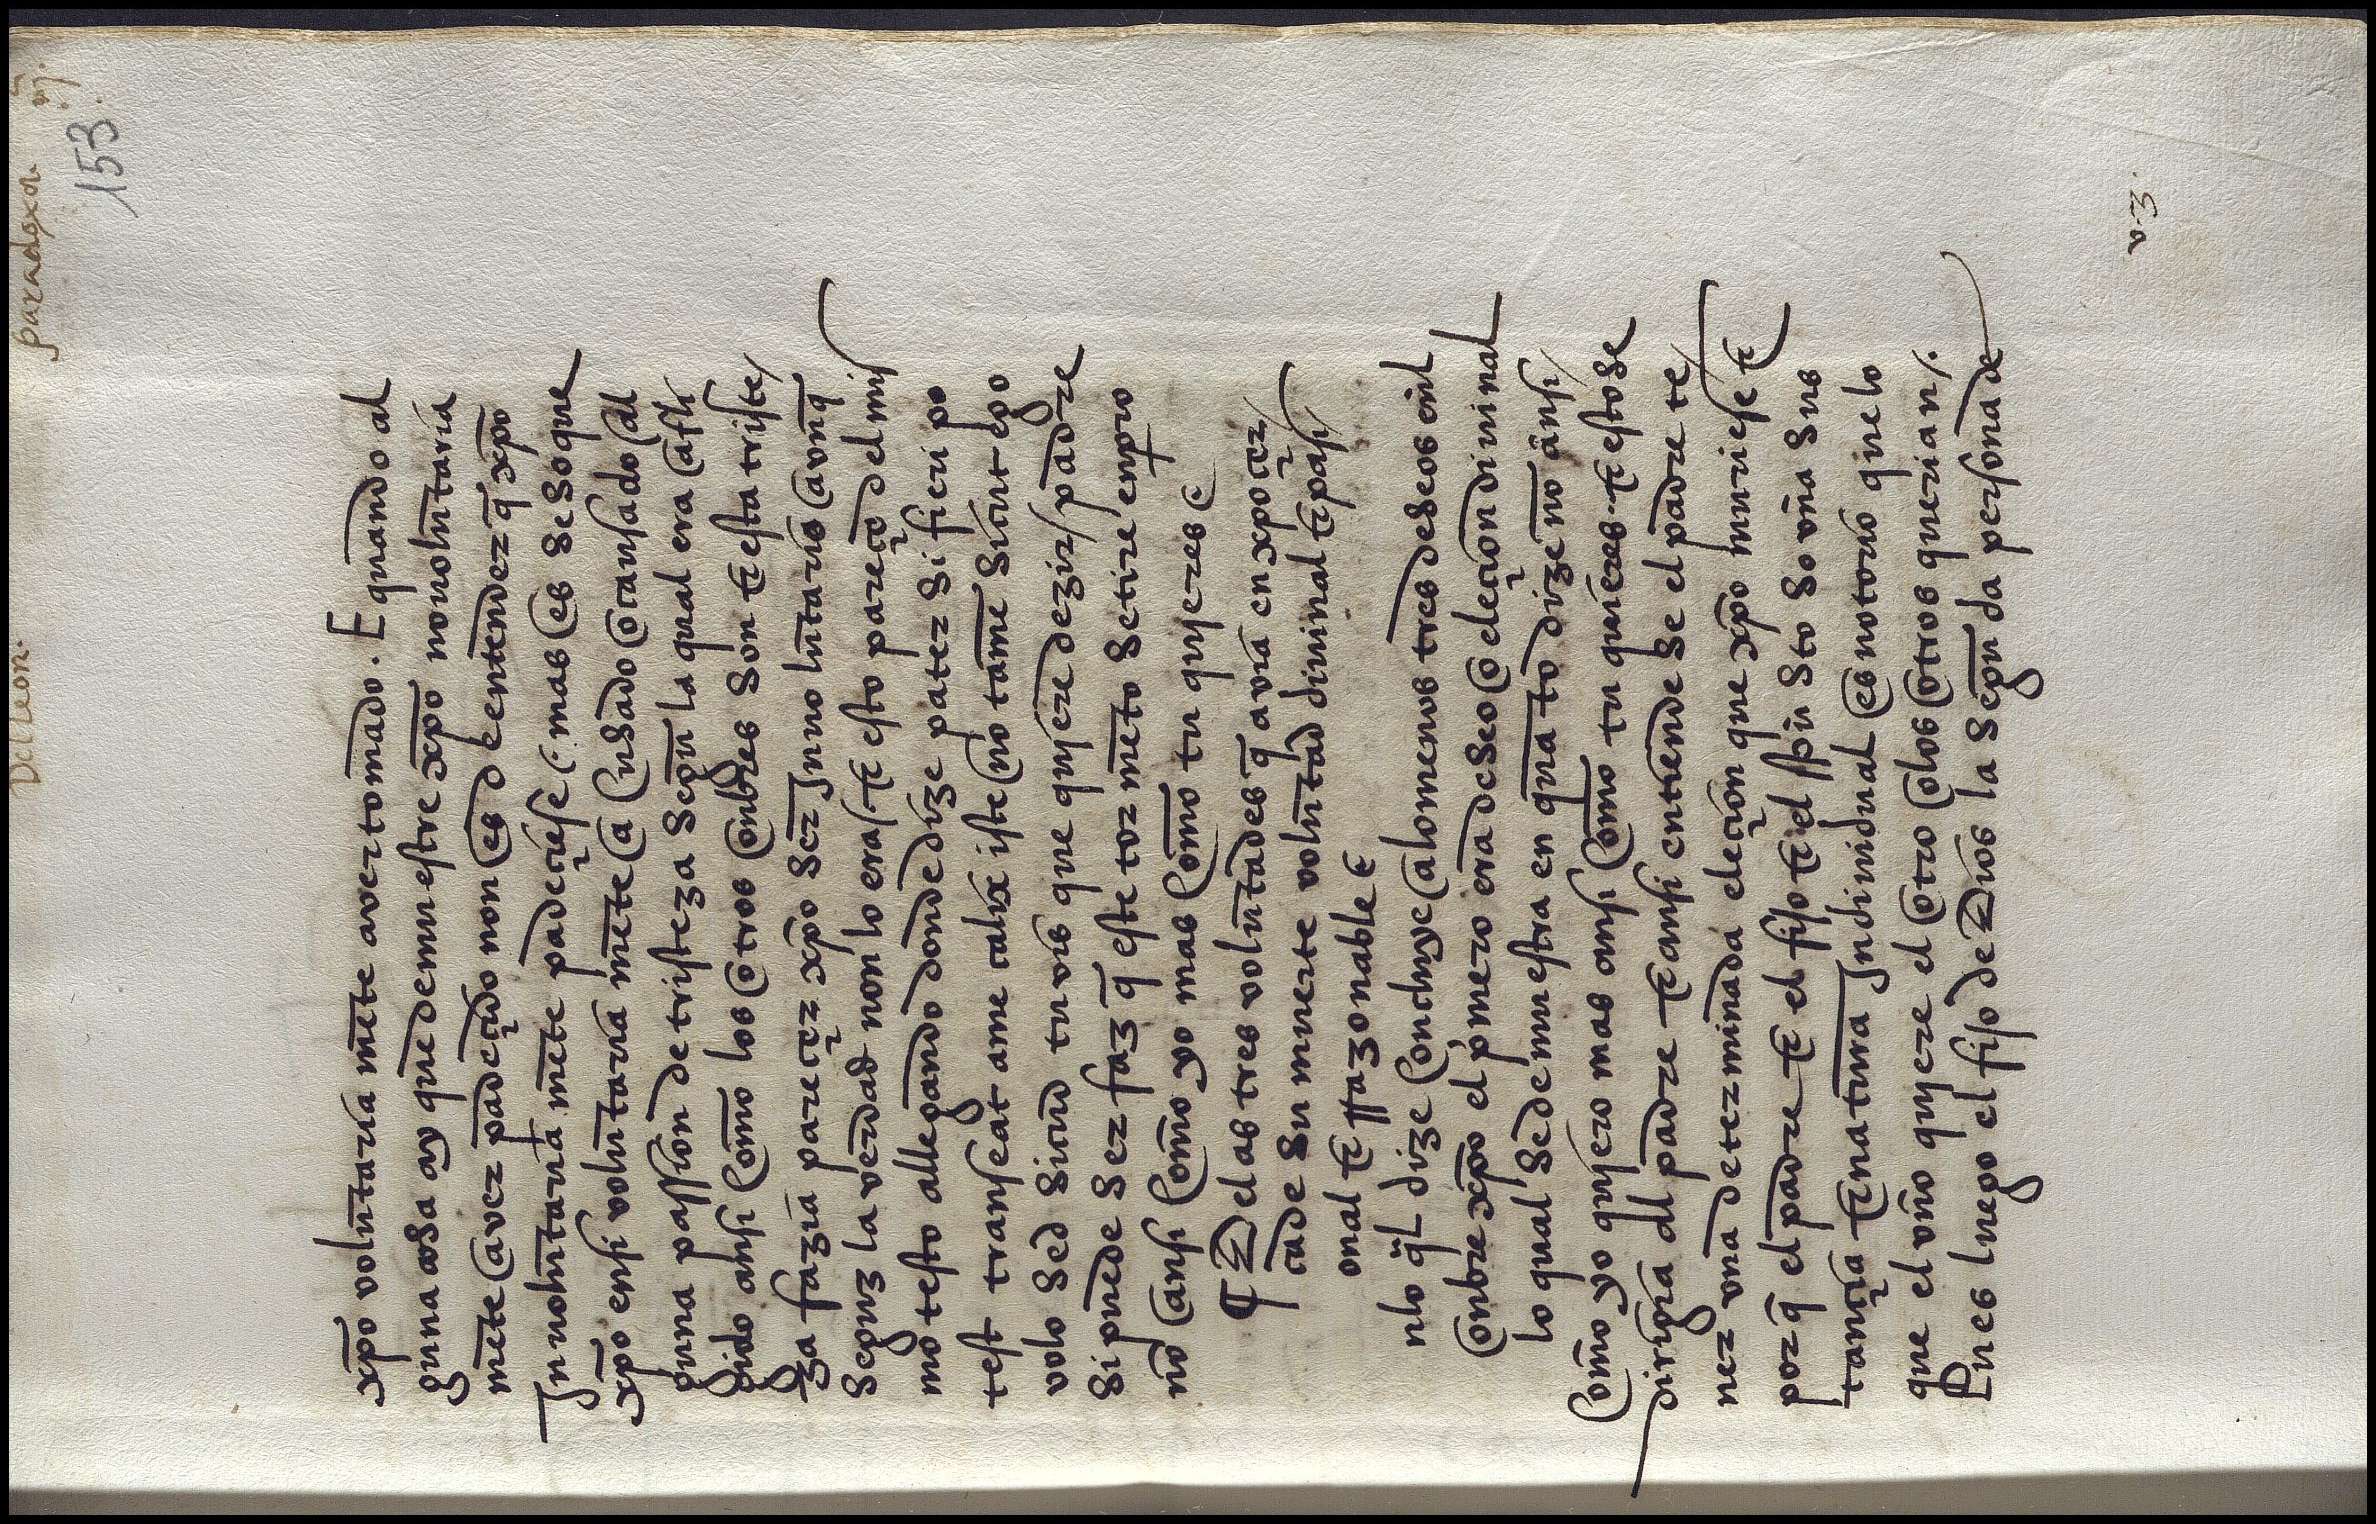 Del Leon. paradoxa.
153.
xp̄o voluntaria mēte aver tomado. E quando al
guna cosa ay que demuestre xp̄o no voluntaria
mēte aver padeçido non es d entender q̄ xp̄o
Jnvoluntaria mēte padeçiese mas es se so que
xp̄o en si voluntaria mēte a cusado o cansado al
guna passion de tristeza segun la qual era afli
gido ansi como los otros onbres son τ esta triste
za fazia pareçer xp̄o ser Jnvoluntario avnq̄
segun la verdad non lo era τ esto pareçio del mis
mo testo allegando donde dize pater si fieri po
test transeat a me calix iste no tamē sicut ego
volo sed sicud tu vis que quyere dezir padre
si puede ser faz q̄ este tormēto se tire enpro
nō ansi como yo mas como tu quyeres
¶ De las tres voluntades q̄ avia en xp̄o çer
ca de su muerte voluntad diuinal τ pasi
onal τ rrazonable τ
lo ql dize Concluye a lo menos tres deseos en l
onbre xp̄o el pmero era deseo o eleçion diuinal
lo qual se demuestra en quāto dize nō ansi
como yo quyero mas ansi como tu quieres. τ esto se
dirigia al padre τ ansi entiende se el padre te
ner vna determinada eleçion que xp̄o muriese τ
porq̄ el padre τ el fijo τ el spū sto so vna sus
tançia τ natura Jndiuidual es notorio que lo
que el vno quyere el otro o los otros querian /.
Pues luego el fijo de Dios la segunda persona de